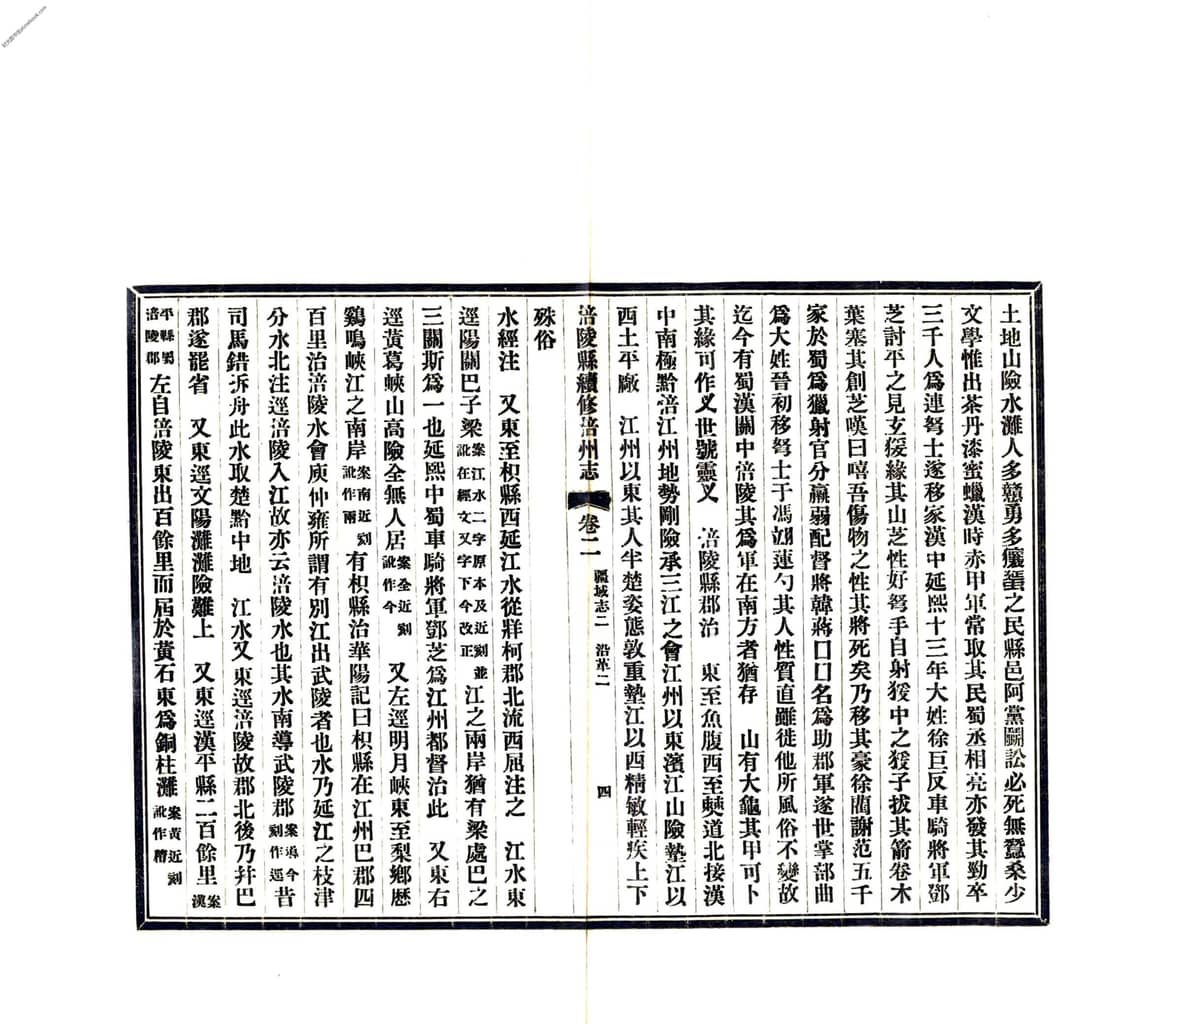 土地山險水灘人多戇勇多獽蜑之民縣邑阿黨鬬訟必死無蠶桑少
文學惟出茶丹漆蜜蠟漢時赤甲軍常取其民蜀丞相亮亦發其勁卒
三千人爲連弩士遂移家漢中延熙十三年大姓徐巨反車騎將軍鄧
芝討平之見玄猨緣其山芝性好弩手自射猨中之猨子拔其箭卷木
葉塞其創芝嘆曰嘻吾傷物之性其將死矣乃移其豪徐藺謝范五千
家於蜀爲獵射官分羸弱配督將韓蔣囗囗名爲助郡軍遂世掌部曲
爲大姓晉初移弩士于馮翊蓮勺其人性質直雖徙他所風俗不變故
迄今有蜀漢關中涪陵其爲軍在南方者猶存　山有大龜其甲可卜
其緣可作义世號靈义　涪陵縣郡治　東至魚腹西至僰道北接漢
中南極黔涪江州地勢剛險承三江之會江州以東濱江山險墊江以
西土平廠　江州以東其人半楚姿態敦重墊江以西精敏輕疾上下
涪陵縣續修涪州志　卷二　疆域志二　沿革二　四
殊俗
水經注　又東至枳縣西延江水從牂柯郡北流西屈注之　江水東
逕陽關巴子梁案江水二字原本及近刻並訛在經文又字下今改正江之兩岸猶有梁處巴之
三關斯爲一也延熙中蜀車騎將軍鄧芝爲江州都督治此　又東右
逕黃葛峽山高險全無人居案全近刻訛作今　又左逕明月峽東至梨鄉歷
鷄鳴峽江之南岸案南近刻訛作兩有枳縣治華陽記曰枳縣在江州巴郡四
百里治涪陵水會庾仲雍所謂有別江出武陵者也水乃延江之枝津
分水北注逕涪陵入江故亦云涪陵水也其水南導武陵郡案導今刻作逕昔
司馬錯泝舟此水取楚黔中地　江水又東逕涪陵故郡北後乃幷巴
郡遂罷省　又東逕文陽灘灘險難上　又東逕漢平縣二百餘里案漢
平縣蜀涪陵郡左自涪陵東出百餘里而屆於黃石東爲銅柱灘案黃近刻訛作積